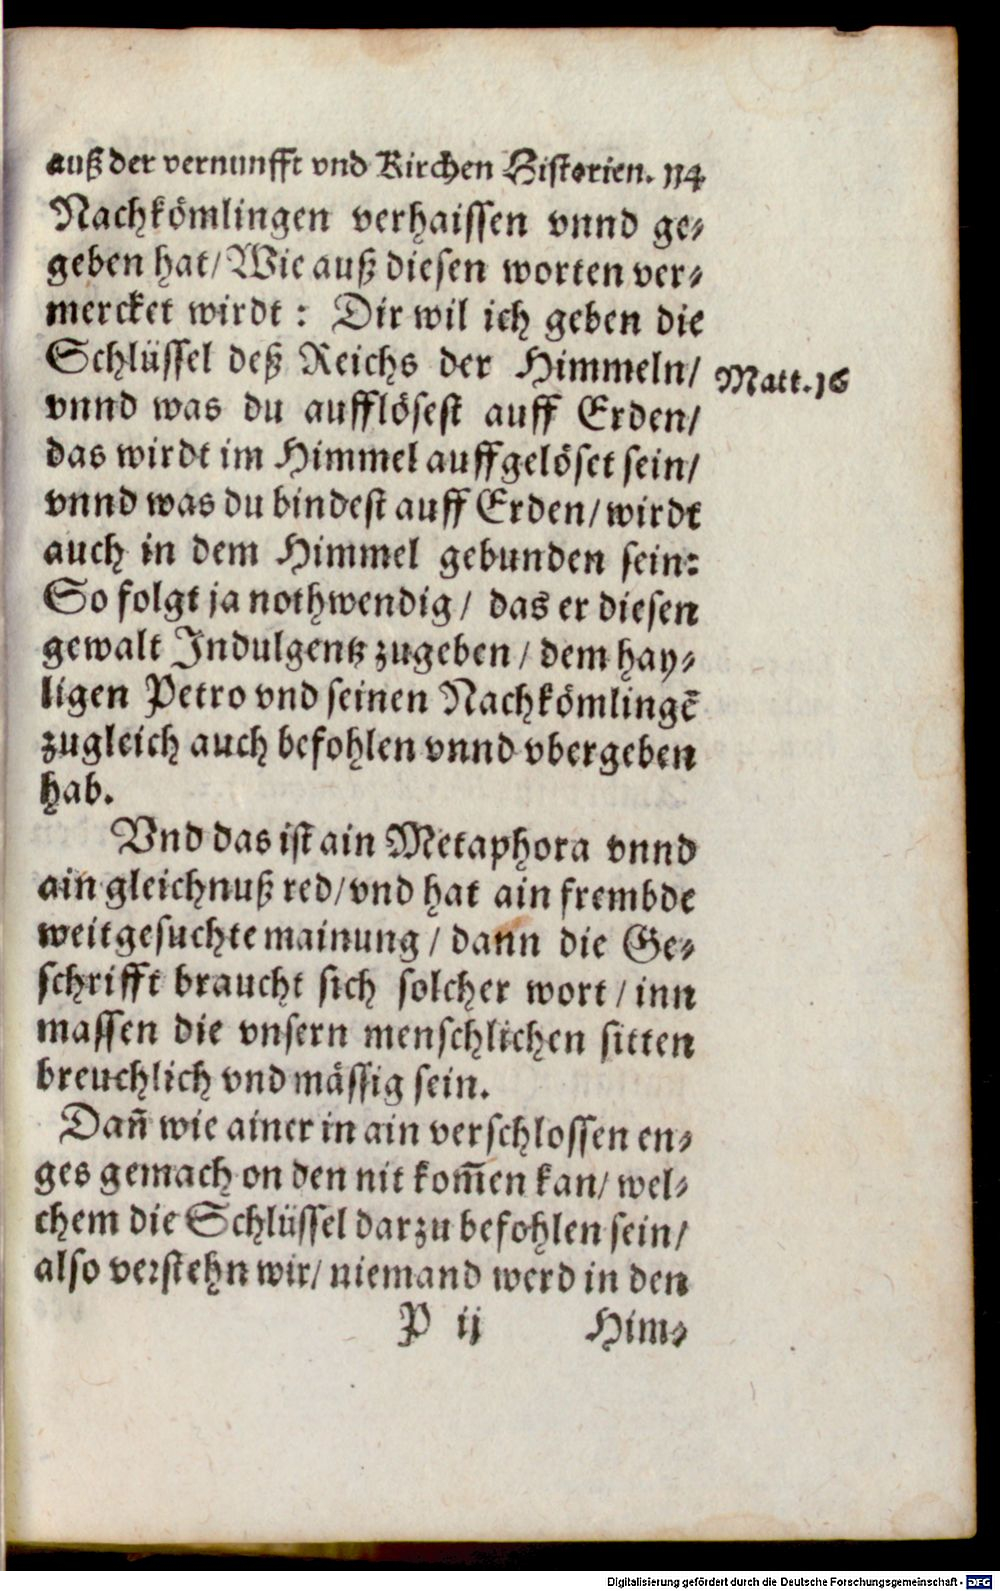 auß der vernunfft vnd Kirchen Historien. 114
Nachkömlingen verhaissen vnnd ge⸗
geben hat/ Wie auß diesen worten ver⸗
mercket wirdt : Dir wil ich geben die
Schlüssel deß Reichs der Himmeln/
Matt.16
vnnd was du aufflösest auff Erden/
das wirdt im Himmel auffgelöset sein/
vnnd was du bindest auff Erden/ wirdt
auch in dem Himmel gebunden sein:
So folgt ja nothwendig/ das er diesen
gewalt Indulgentz zugeben/ dem hay⸗
ligen Petro vnd seinen Nachkömlingē
zugleich auch befohlen vnnd vbergeben
hab.
Vnd das ist ain Metaphora vnnd
ain gleichnuß red/ vnd hat ain frembde
weitgesuchte mainung/ dann die Ge⸗
schrifft braucht sich solcher wort/ inn
massen die vnsern menschlichen sitten
breuchlich vnd mässig sein.
Dañ wie ainer in ain verschlossen en⸗
ges gemach on den nit kom̃en kan/ wel⸗
chem die Schlüssel darzu befohlen sein/
also verstehn wir/ niemand werd in den
P ij Him⸗
Digitalisierung gefördert durch die Deutsche Forschungsgemeinschaft - DFG